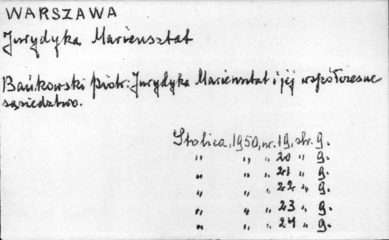 WARSZAWA
Jurydyka Mariensztat
Bańkowski Piotr: Jurydyka Mariensztat i jej współczesne
sąsiedztwo.
Stolica. 1950, nr. 19, str. 9.
" " " 20 " 9.
" " " 21 " 9.
" " " 22 " 9.
" " " 23 " 9.
" " " 24 " 9.